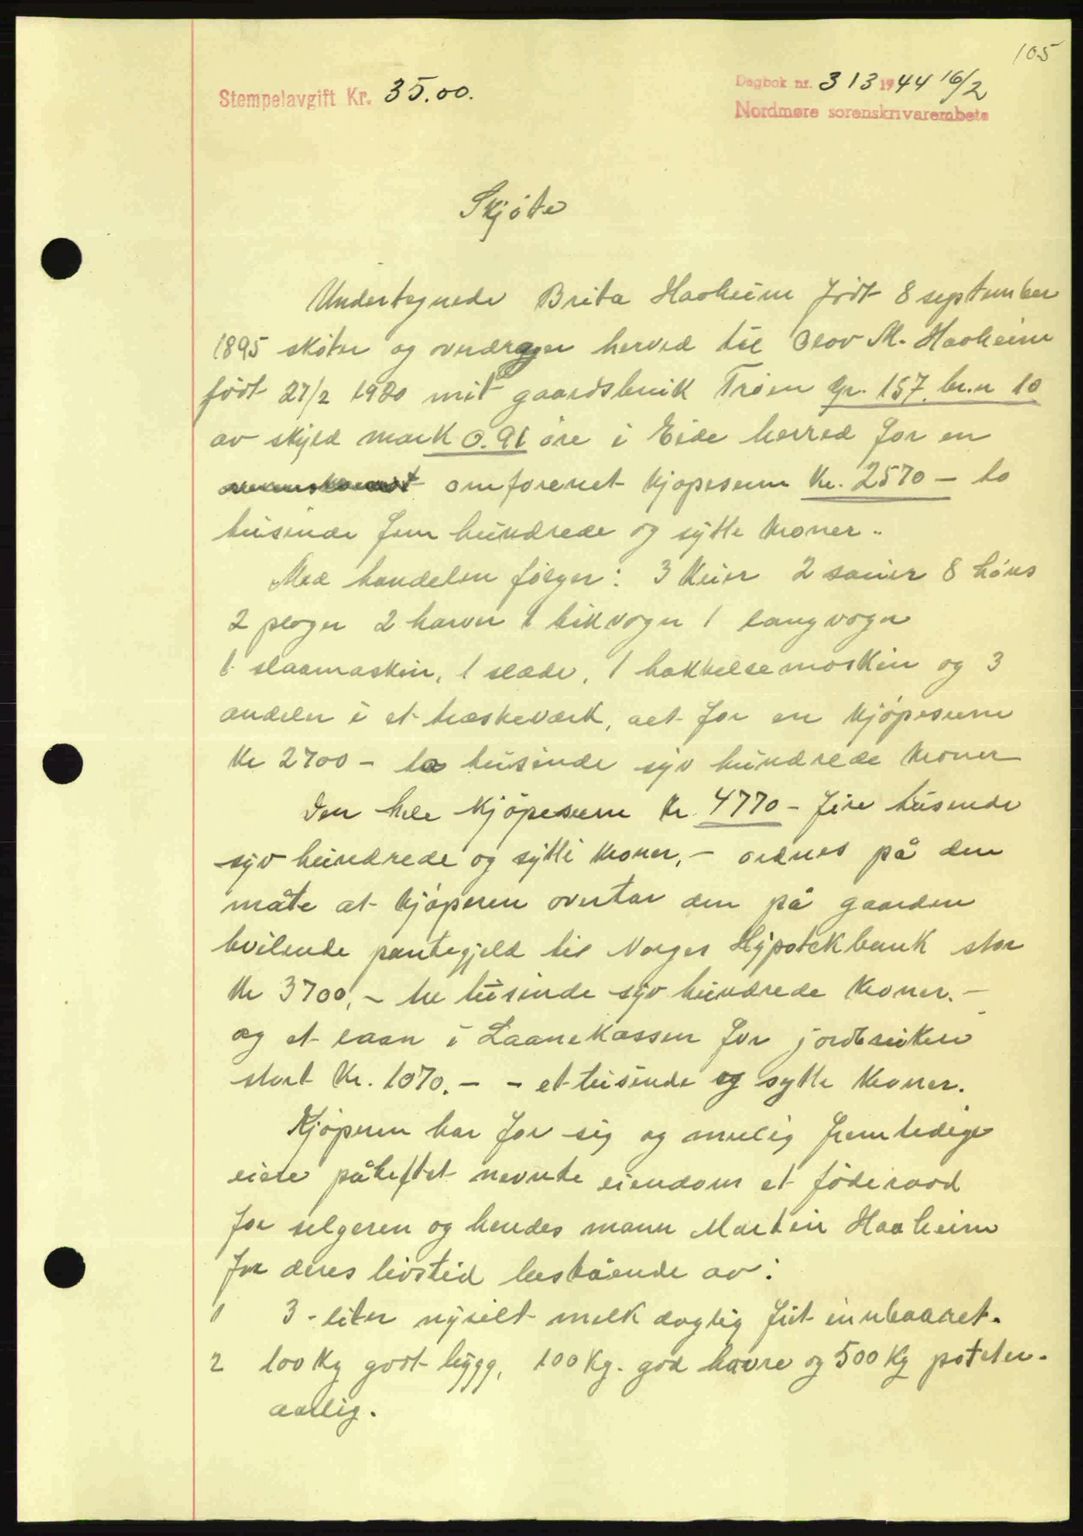 105
Stempelavgift Kr. 35.00.
Dagbok nr. 313 1944 16/2
Nordmøre sorenskrivarembete
Skjøte
Undertegnede Brita Haaheim født 8 september
1895 skøter og overdrager herved til Olov M. Haaheim
født 27/2 1920 mit gaardsbruk Trøen gr. 157. br.n 10
av skyld mark 0.91 øre i Eide herred for en
omforenet kjøpesum Kr. 2570 – to
tusinde fem hundrede og sytti kroner.
Med handelen følger: 3 kuier 2 sauier 8 høns
2 ploger 2 harver 1 kikvogn 1 langvogn
1 slaamaskin, 1 slæde, 1 hakkelsemaskin og 3
andeler i et træskeværk, alt for en kjøpesum
Kr 2700 – to tusinde syv hundrede kroner
Den hele kjøpesum Kr. 4770 – fire tusende
syv hundrede og sytti kroner, – ordnes på den
måte at kjøperen overtar den på gaarden
hvilende pantegjeld til Norges Hypotekbank stor
Kr 3700, – tre tusinde syv hundrede kroner. –
og et laan i Laanekassen for jordbrukere
stort Kr. 1070. – – et tusinde og sytti kroner.
Kjøperen har for sig og mulig fremtidige
eiere påheftet nevnte eiendom et føderaad
for selgeren og hendes mann Martin Haaheim
for deres livstid bestående av:
1 3 - liter nysilt melk daglig frit innbaaret.
2 100 Kg godt bygg, 100 Kg. god havre og 500 Kg poteter.
aarlig.